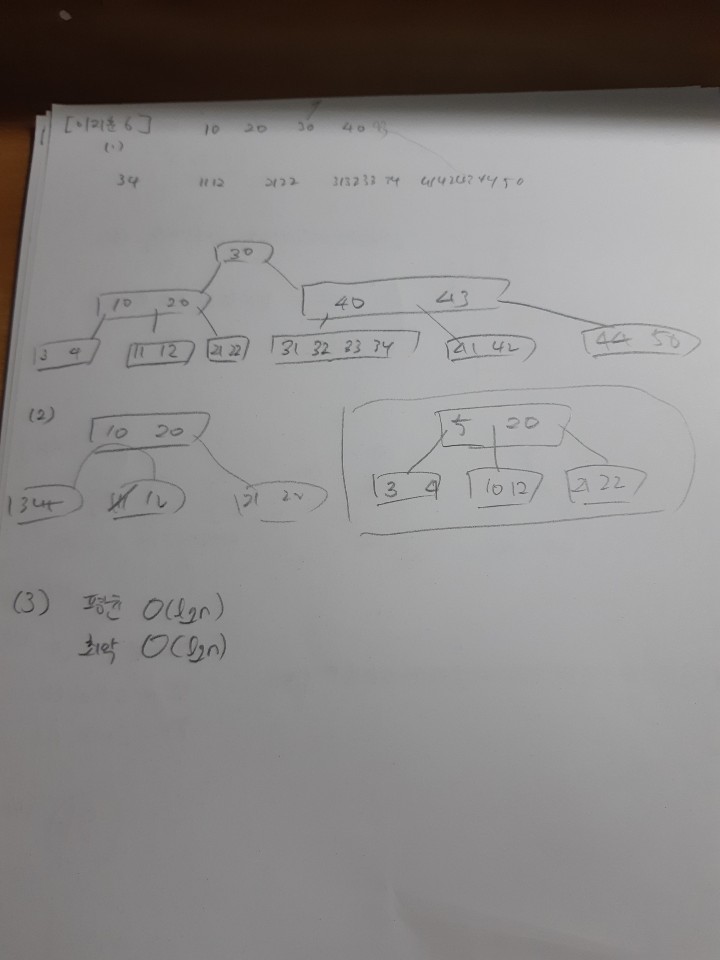 [이리운 6] 10 20 30 40
(1)
34 1112 2122 31323334 4142434450
30
10 20 40 43
3 4 11 12 21 22 31 32 33 34 41 42 44 50
(2)
10 20 5 20
3 4 11 12 21 22 3 4 10 12 21 22
(3) 평균 O(lgn)
최악 O(lgn)